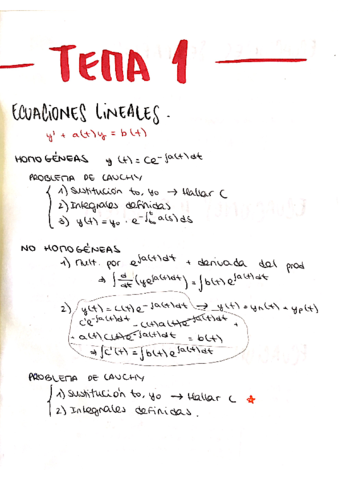 TEMA 1
ECUACIONES LINEALES.
y' + a(t)y = b(t)
HOMOGÉNEAS y(t) = Ce^{-∫a(t)dt}
PROBLEMA DE CAUCHY
1) Sustitución to, yo → Hallar C
2) Integrales definidas
3) y(t) = yo · e^{-∫_{to}^{t} a(s)ds}
NO HOMOGÉNEAS
1) Mult. por e^{∫a(t)dt} + derivada del prod
⇒ ∫ d/dt (ye^{∫a(t)dt}) = ∫b(t)e^{∫a(t)dt}
2) y(t) = C(t)e^{-∫a(t)dt} → y(t) = yh(t) + yp(t)
C'e^{-∫a(t)dt} - C(t)a(t)e^{-∫a(t)dt} +
+ a(t)C(t)e^{-∫a(t)dt} = b(t)
⇒ ∫C'(t) = ∫b(t)e^{∫a(t)dt}
PROBLEMA DE CAUCHY
1) Sustitución to, yo → Hallar C
2) Integrales definidas.